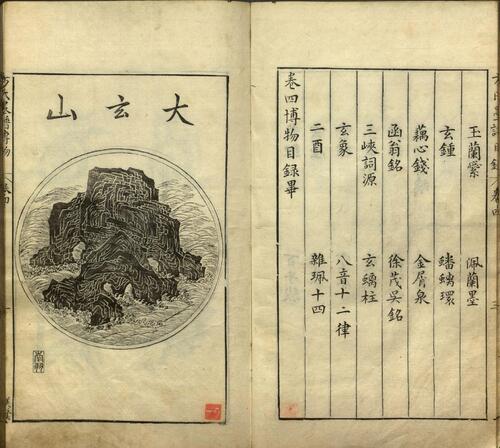 玉蘭縈 佩蘭墨
玄鍾 蟠螭環
藕心錢 金屑泉
函翁銘 徐茂吳銘
三峽詞源 玄螭柱
玄象 八音十二律
二酉 雜珮十四
卷四博物目録畢
大玄山
方氏墨譜博物 卷四